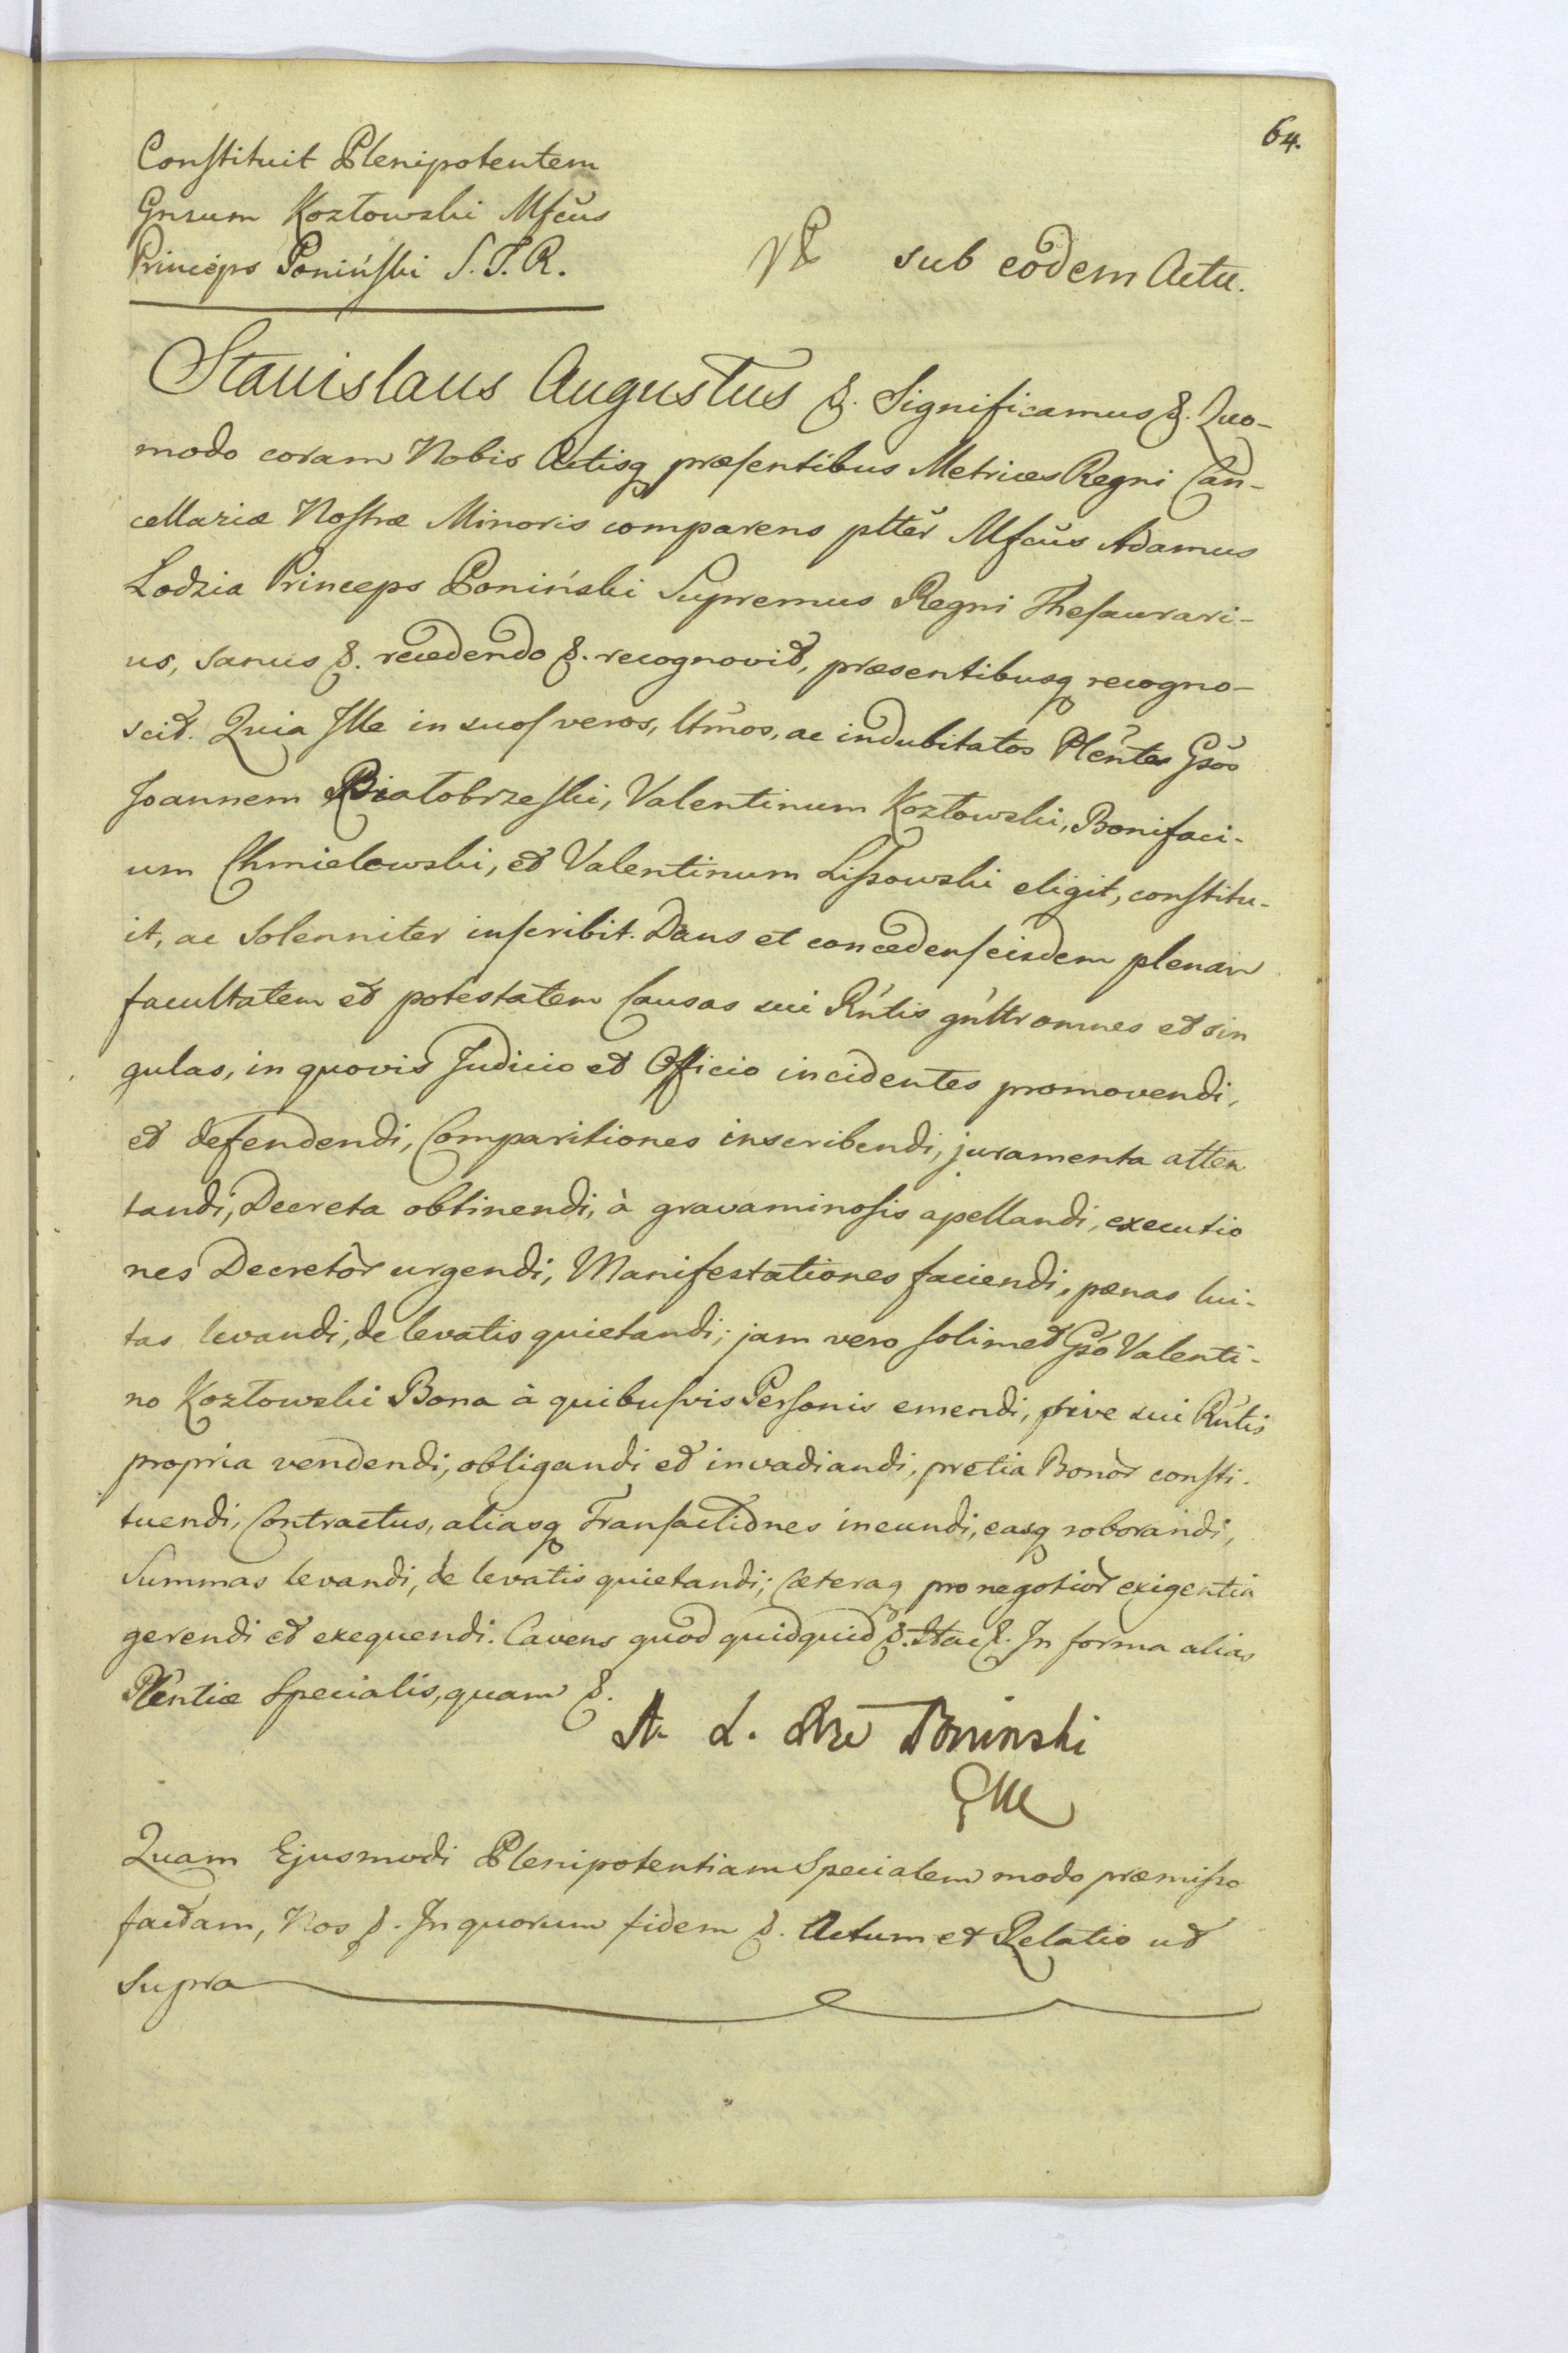 64.
Constituit Plenipotentem
Gnrum Kozłowski Mfcus
Princeps Poniński S. T. R.
sub eodem Actu.
Stanislaus Augustus &. Significamus &. Quo-
modo coram Nobis Actisq præsentibus Metrices Regni Can-
cellariæ Nostræ Minoris comparens plter Mfcus Adamus
Lodzia Princeps Poniński Supremus Regni Thesaurari-
us, sanus &. recedendo &. recognovit, præsentibusq recogno-
scit. Quia Ille in suos veros, ltmos, ac indubitatos Plentes Gsos
Joannem Białobrzeski, Valentinum Kozłowski, Bonifaci-
um Chmielewski, et Valentinum Lissowski eligit, constitu-
it, ac Solenniter inscribit. Dans et concedens eisdem plenam
facultatem et potestatem Causas sui Rntis gnltr omnes et sin
gulas, in quovis Judicio et Officio incidentes promovendi,
et defendendi, Comparitiones inscribendi, juramenta atten
tandi, Decreta obtinendi, à gravaminosis apellandi, executio
nes Decretor urgendi, Manifestationes faciendi, pænas lui-
tas levandi, de levatis quietandi; jam vero solimet Gso Valenti-
no Kozłowski Bona à quibusvis Personis emendi, sive sui Rntis
propria vendendi, obligandi et invadiandi, pretia Bonor consti-
tuendi, Contractus, aliasq Transactiones ineundi, easq roborandi,
Summas levandi, de levatis quietandi; Cæteraq pro negotior exigentia
gerendi et exequendi. Cavens quod quidquid &. Itac &. In forma alias
Plentiæ Specialis, quam &.
A. L. Poninski
Quam Ejusmodi Plenipotentiam Specialem modo præmisso
factam, Nos &. In quorum fidem &. Actum et Relatio ut
Supra